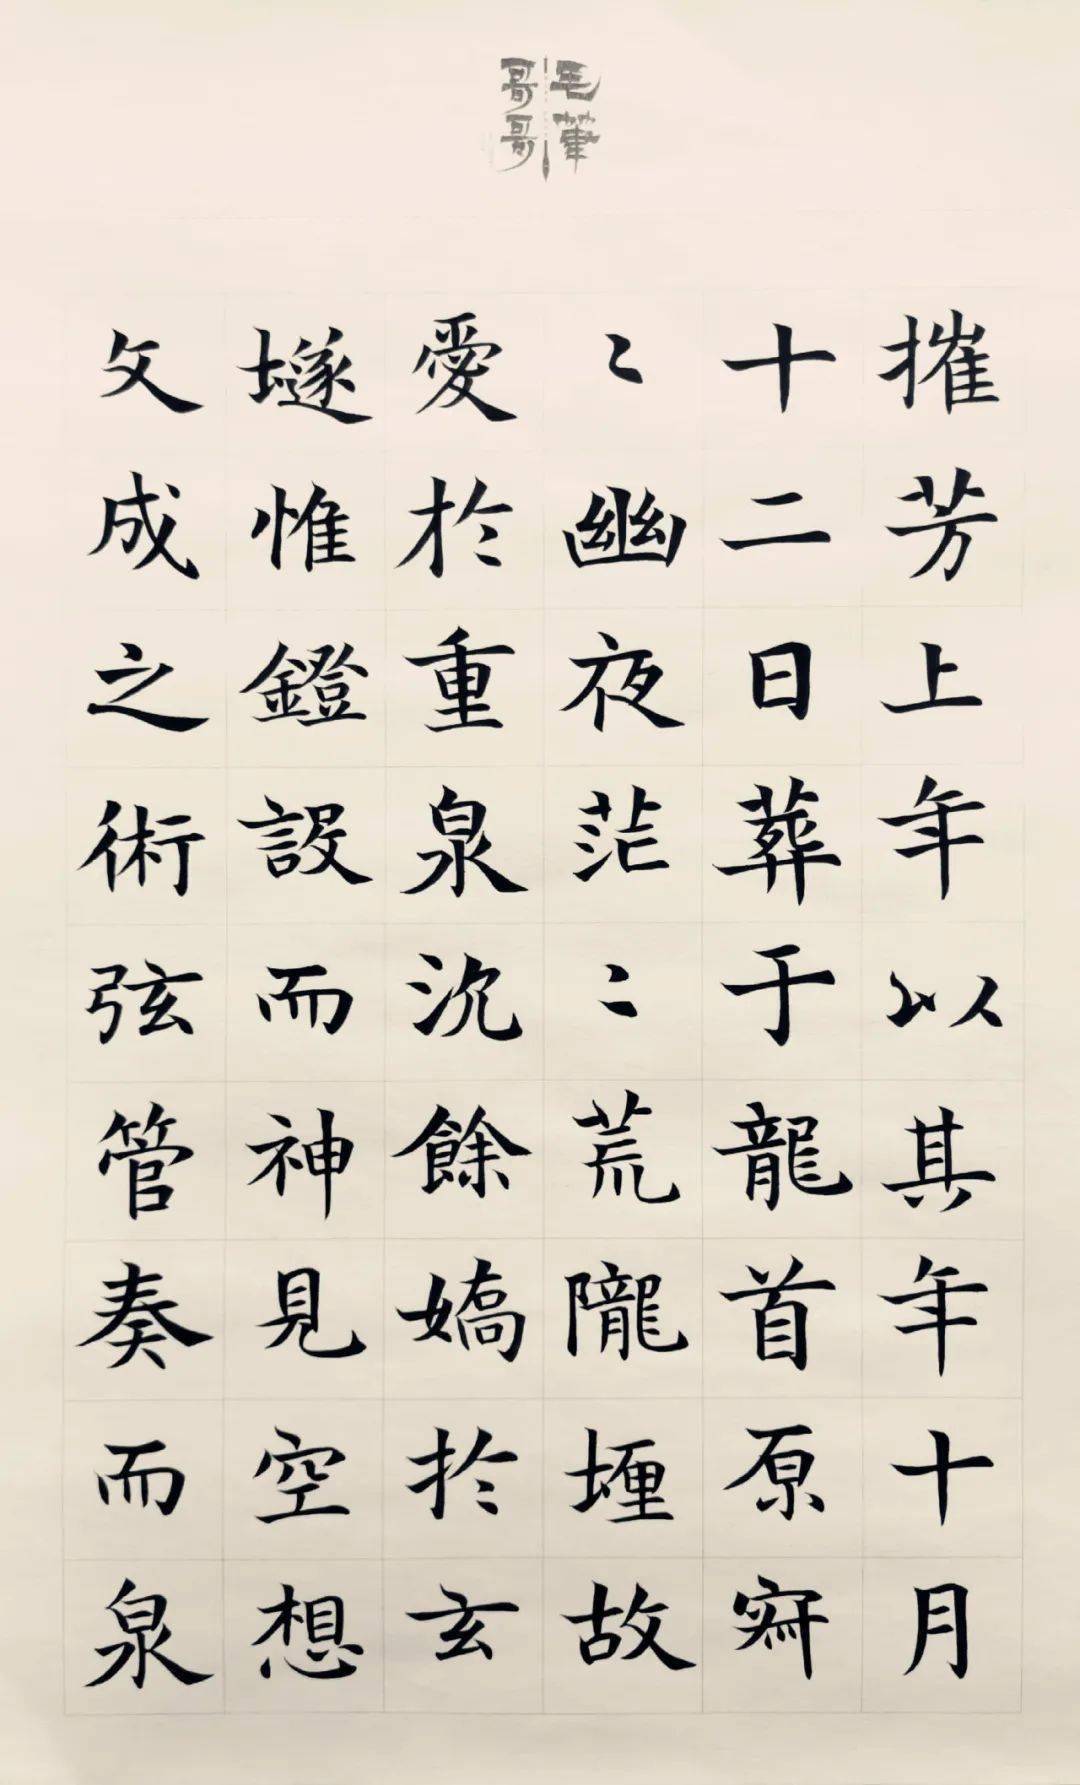 毛筆
哥哥
摧芳上年以其年十月
十二日葬于龍首原寂
〻幽夜茫〻荒隴堙故
愛於重泉沉餘嬌於玄
墜惟鐙設而神見空想
文成之術弦管奏而泉